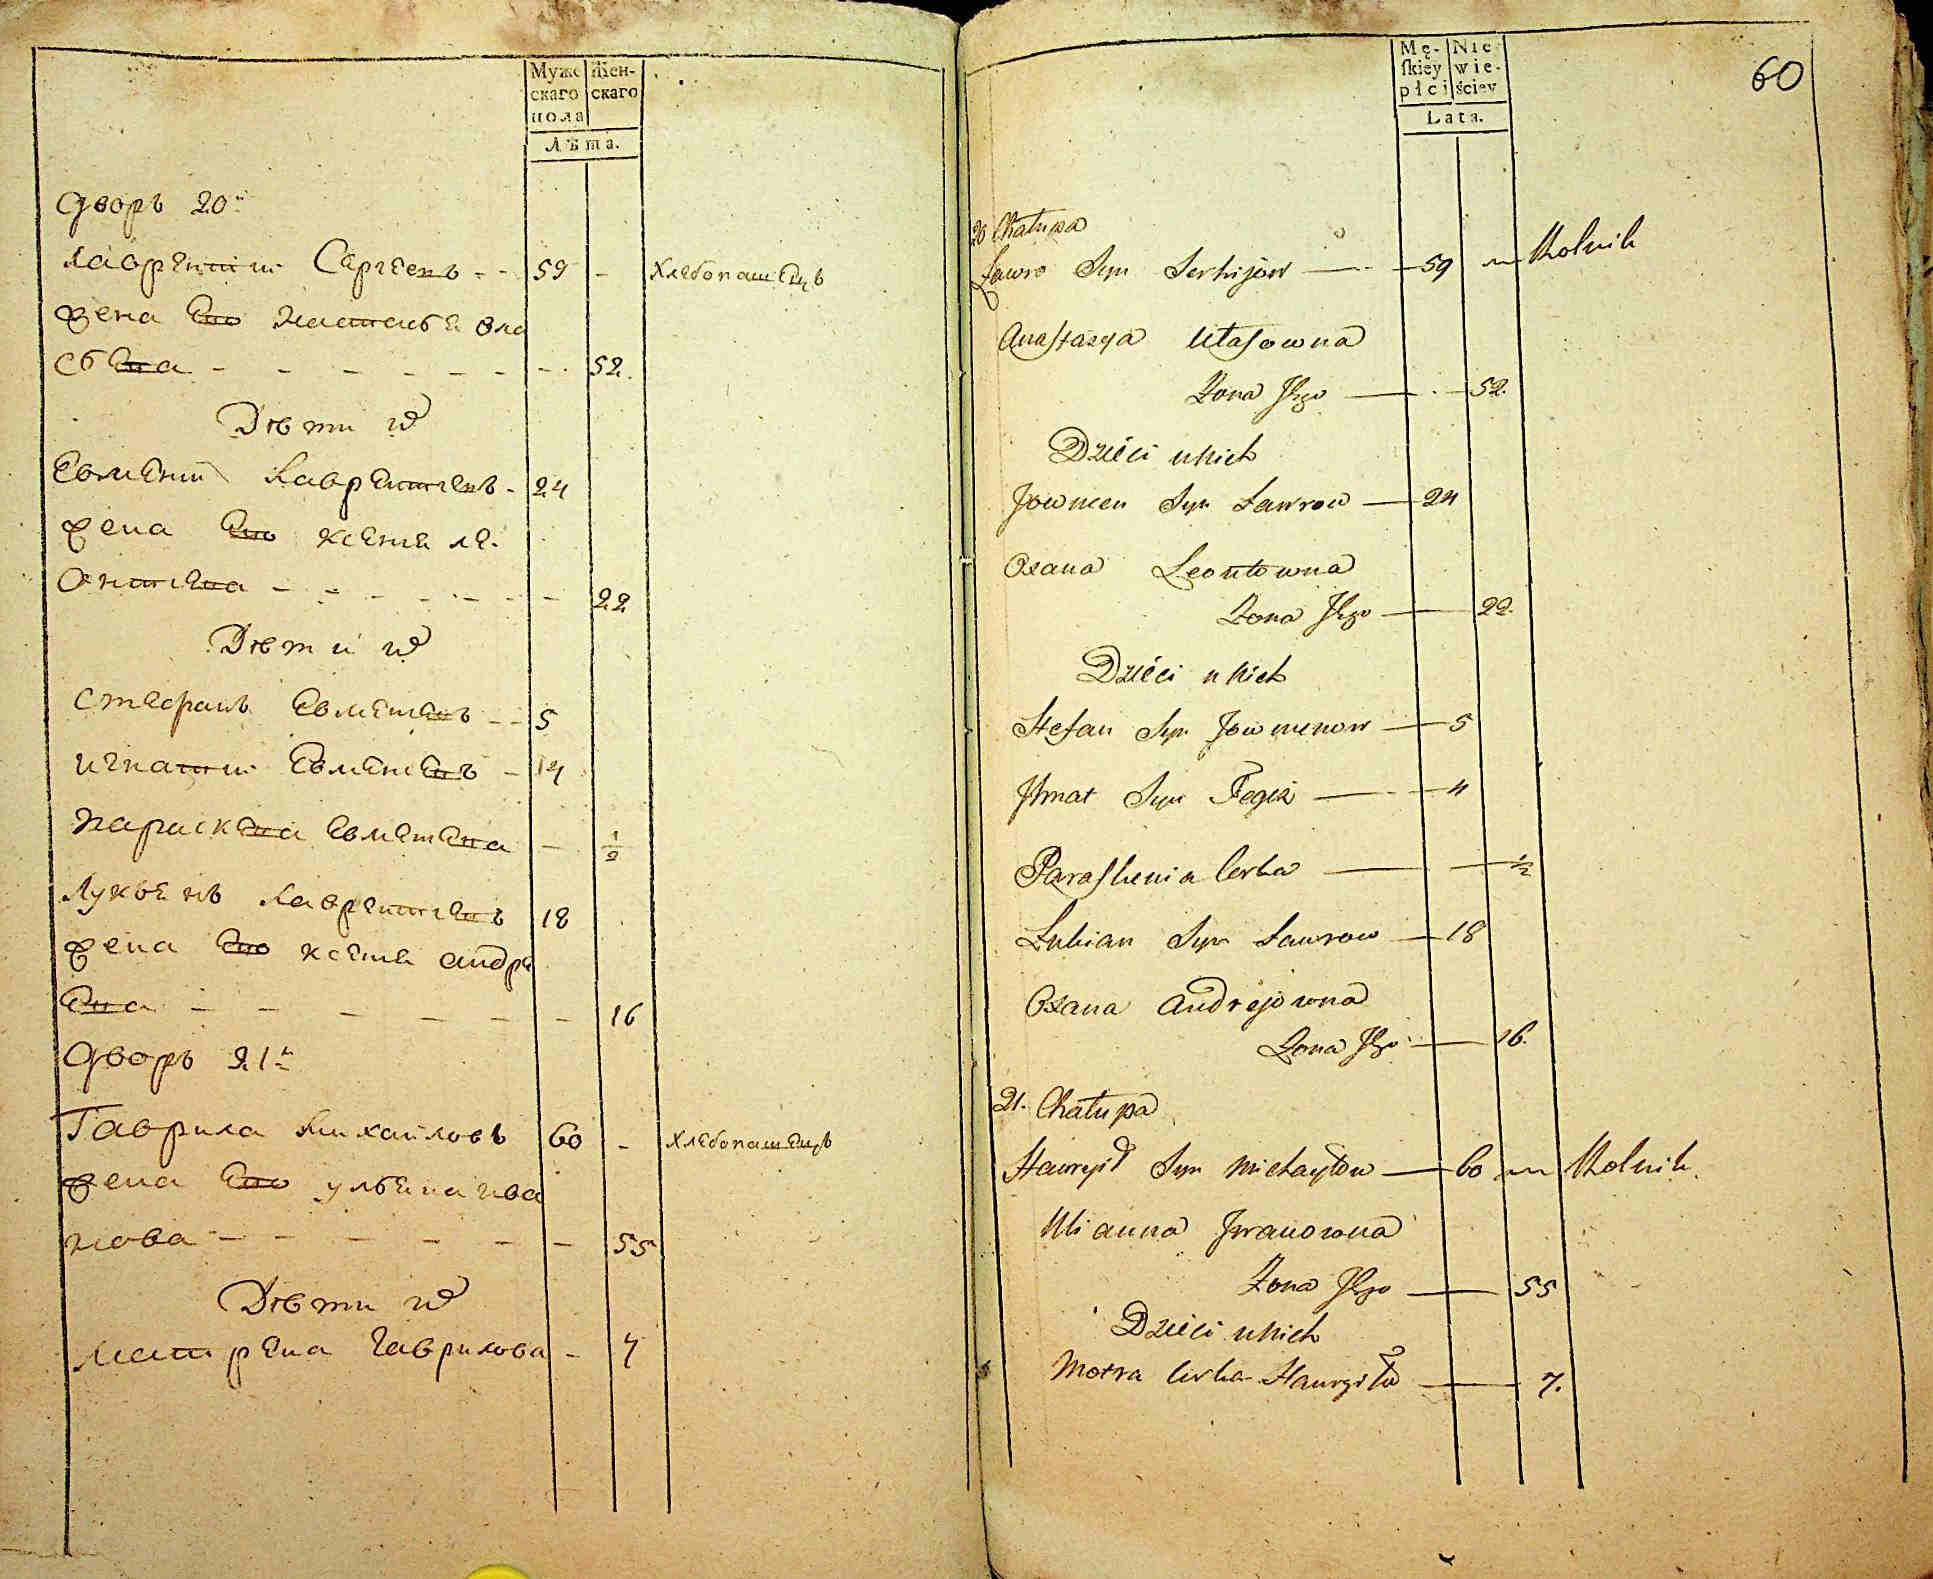 Муже
скаго
пола
Жен-
скаго
Лѣта.
Дворъ 20й
Лаврентий Сергеевъ - - 59 - Хлебопашецъ
Жена Ево Настасья Вла
съева - - - - - - - 52.
Дѣти их
Евмений Лаврентиевъ - 24
Жена Ево Ксения Ле-
онтиева - - - - - - - 22
Дѣти их
Стефанъ Евмениевъ - - 5
Игнатий Евмениевъ - 4
Параскева Евмениева - 1/2
Лукьянъ Лаврентиевъ 18
Жена Ево Ксения Андре
Ева - - - - - - 16
Дворъ 21й
Гаврила Михайловъ 60 - Хлебопашецъ
Жена Ево Ульяна Ива
нова - - - - - - 55
Дѣти их
Матрена Гаврилова - 7
60
Mę-
skiey
płci
Nie
wie-
ściey
Lata.
20 Chałupa
Ławro Syn Serhijow — 59 — Rolnik
Anastazya Ułasowna
Żona Jego — 52.
Dzieci u Nich
Jowmen Syn Ławrow — 24
Oxana Leontowna
Żona Jego — 22.
Dzieci u Nich
Stefan Syn Jowmenow — 5
Ihnat Syn Tegoż — 4
Paraskewia Corka — 1/2
Łukian Syn Ławrow — 18
Oxana Andrejowna
Żona Jego — 16.
21. Chałupa
Hawrył Syn Michayłow — 60 — Rolnik.
Ulianna Iwanowna
Żona Jego — 55
Dzieci u Nich
Motra Corka Hawryła — 7.